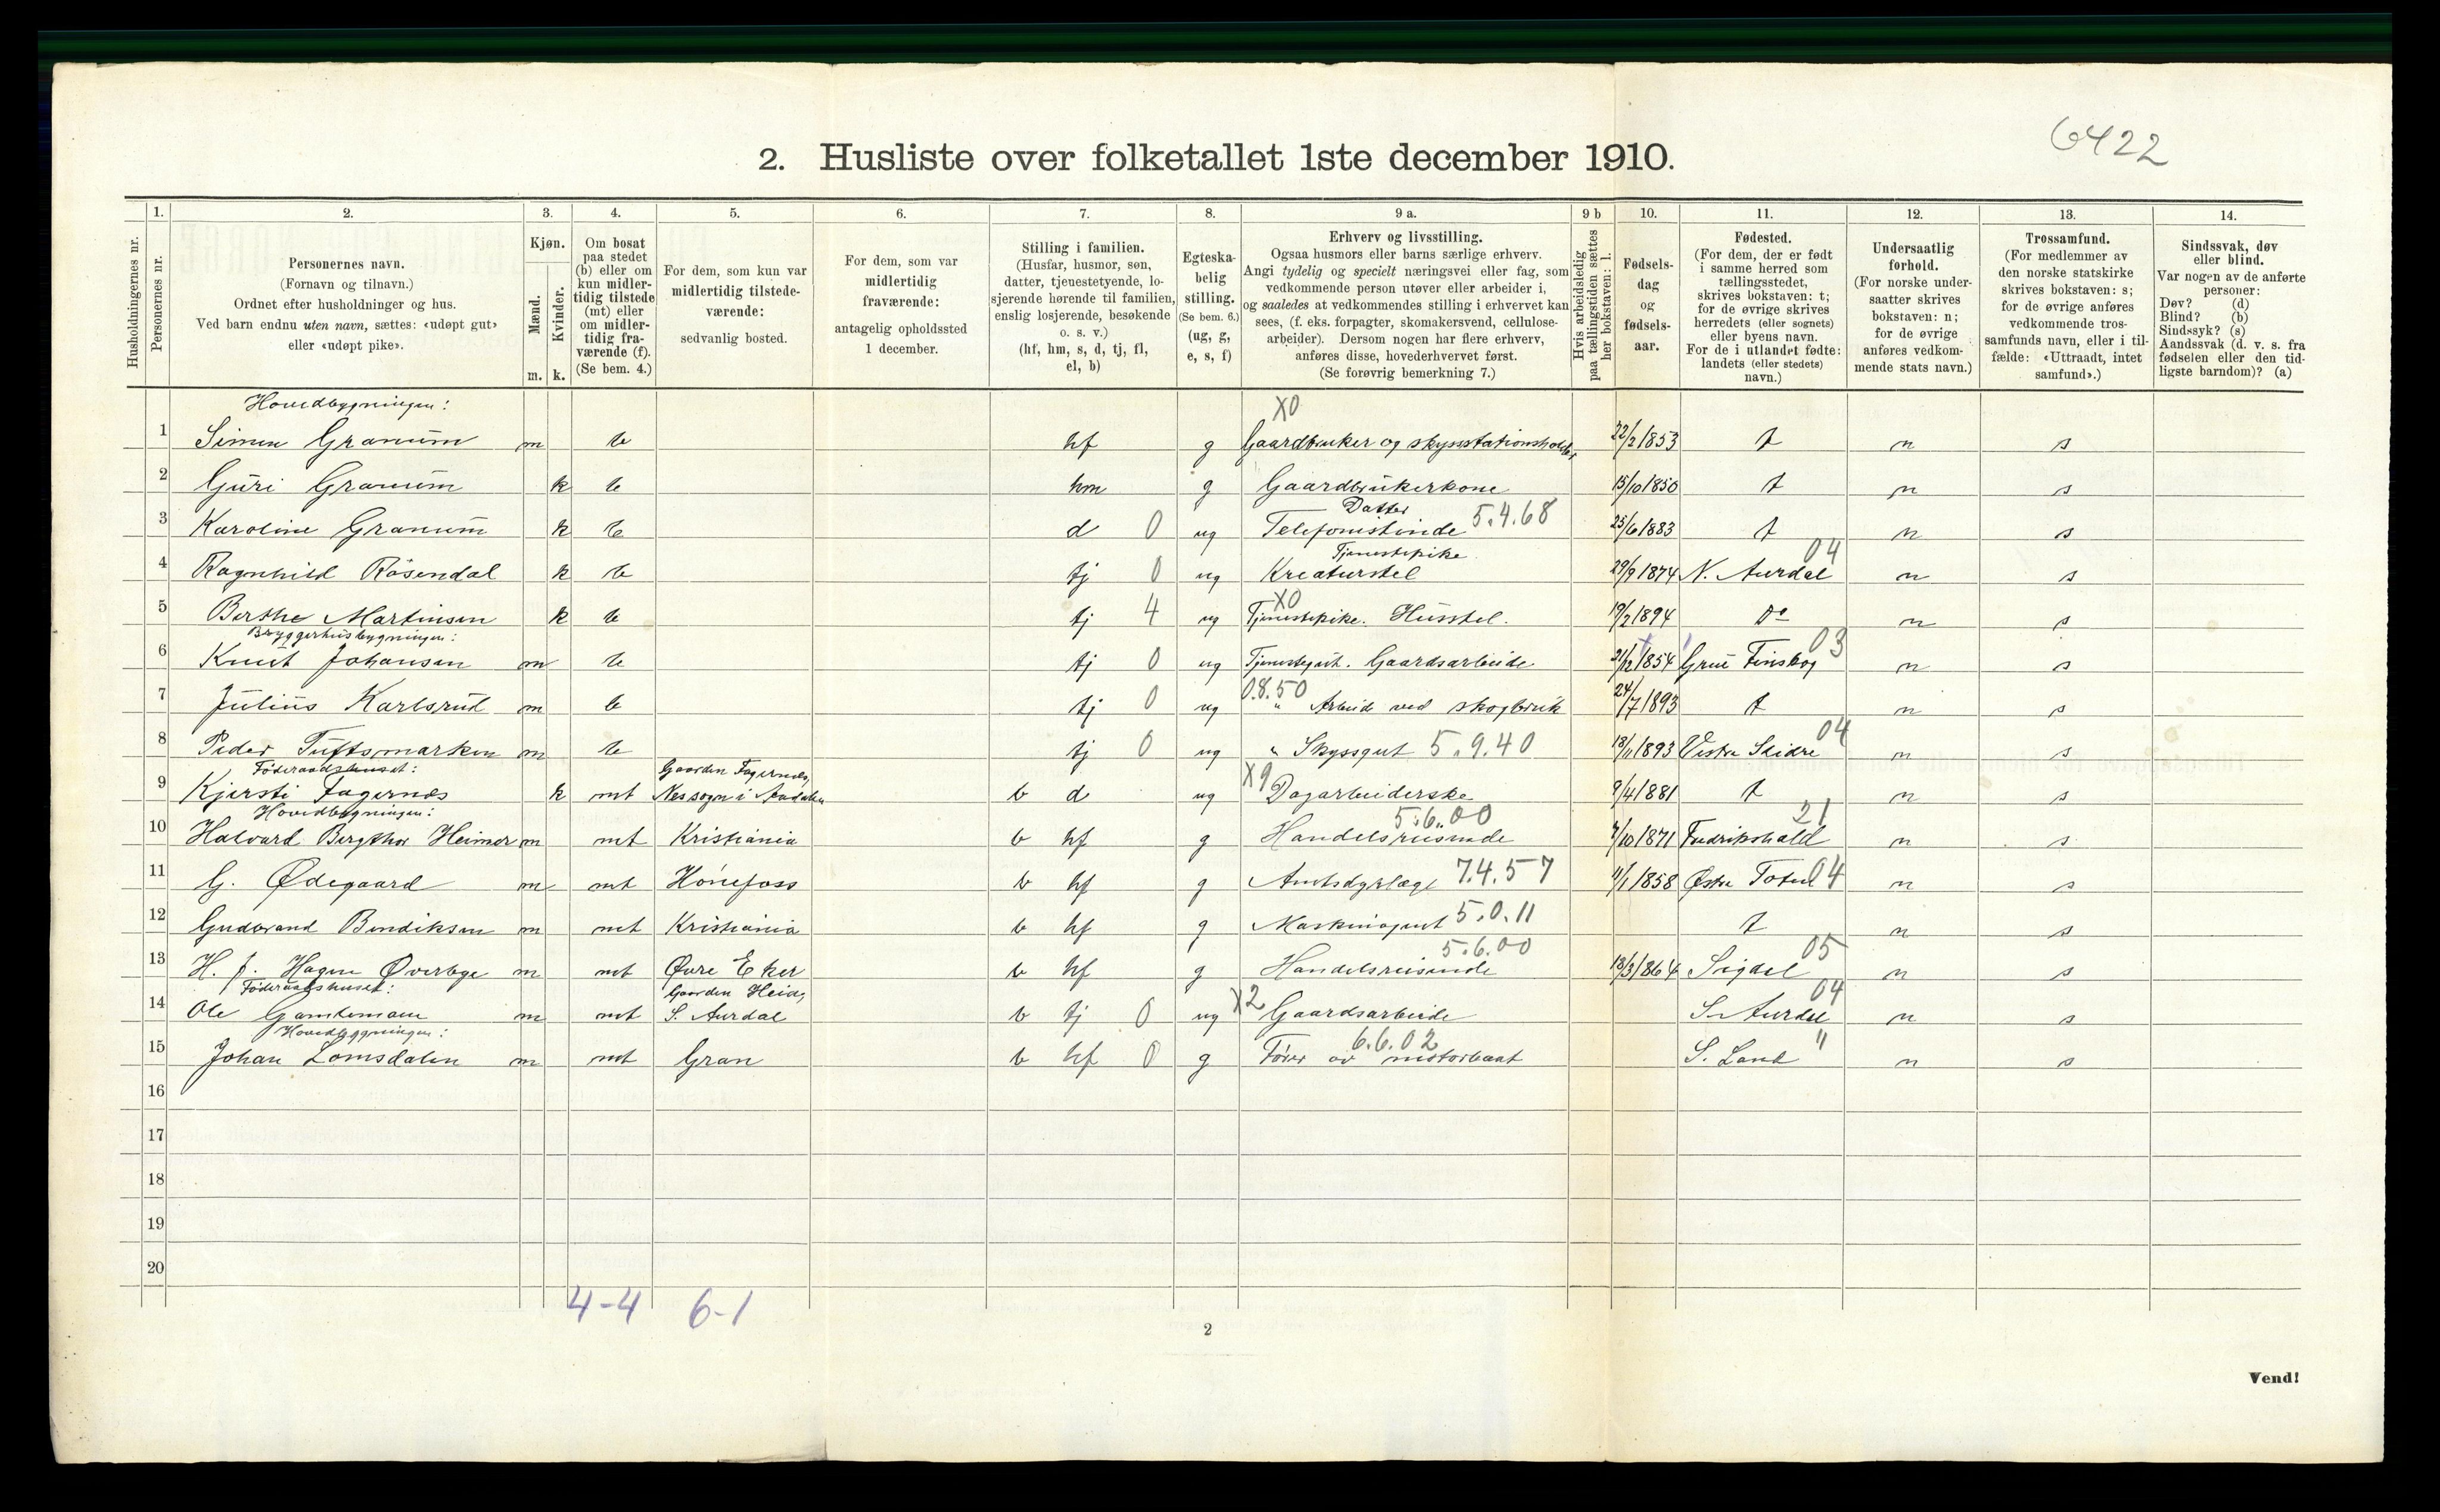 6422
2. Husliste over folketallet 1ste december 1910.
Husholdningernes nr.
1.
Personernes nr.
2.
Personernes navn.
(Fornavn og tilnavn.)
Ordnet efter husholdninger og hus.
Ved barn endnu uten navn, sættes: «udøpt gut»
eller «udøpt pike».
3.
Kjøn.
Mænd.
Kvinder.
m. k.
4.
Om bosat
paa stedet
(b) eller om
kun midler-
tidig tilstede
(mt) eller
om midler-
tidig fra-
værende (f).
(Se bem. 4.)
5.
For dem, som kun var
midlertidig tilstede-
værende:
sedvanlig bosted.
6.
For dem, som var
midlertidig
fraværende:
antagelig opholdssted
1 december.
7.
Stilling i familien.
(Husfar, husmor, søn,
datter, tjenestetyende, lo-
sjerende hørende til familien,
enslig losjerende, besøkende
o. s. v.)
(hf, hm, s, d, tj, fl,
el, b)
8.
Egteska-
belig
stilling.
(Se bem. 6.)
(ug, g,
e, s, f)
9 a.
Erhverv og livsstilling.
Ogsaa husmors eller barns særlige erhverv.
Angi tydelig og specielt næringsvei eller fag, som
vedkommende person utøver eller arbeider i,
og saaledes at vedkommendes stilling i erhvervet kan
sees, (f. eks. forpagter, skomakersvend, cellulose-
arbeider). Dersom nogen har flere erhverv,
anføres disse, hovederhvervet først.
(Se forøvrig bemerkning 7.)
9 b
Hvis arbeidsledig
paa tællingstiden sættes
her bokstaven: l.
10.
Fødsels-
dag
og
fødsels-
aar.
11.
Fødested.
(For dem, der er født
i samme herred som
tællingsstedet,
skrives bokstaven: t;
for de øvrige skrives
herredets (eller sognets)
eller byens navn.
For de i utlandet fødte:
landets (eller stedets)
navn.)
12.
Undersaatlig
forhold.
(For norske under-
saatter skrives
bokstaven: n;
for de øvrige
anføres vedkom-
mende stats navn.)
13.
Trossamfund.
(For medlemmer av
den norske statskirke
skrives bokstaven: s;
for de øvrige anføres
vedkommende tros-
samfunds navn, eller i til-
fælde: «Uttraadt, intet
samfund».)
14.
Sindssvak, døv
eller blind.
Var nogen av de anførte
personer:
Døv? (d)
Blind? (b)
Sindssyk? (s)
Aandssvak (d. v. s. fra
fødselen eller den tid-
ligste barndom)? (a)
Hovedbygningen: X0
1 Simen Granum m b hf g Gaardbruker og skysstationsholder 22/2 1853 t n s
2 Guri Granum k b hm g Gaardbrukerkone 15/10 1850 t n s
Datter
3 Karoline Granum k b d 0 ug Telefonistinde 5.4.68 25/6 1883 t n s
Tjenestepike 04
4 Ragnhild Røsendal k b tj 0 ug Kreaturstel 29/9 1874 N. Aurdal n s
X0
5 Berthe Martinsen k b tj 4 ug Tjenestepike. Husstel. 19/2 1894 Do n s
Bryggerhusbygningen: 03
6 Knut Johansen m b tj 0 ug Tjenestegut. Gaardsarbeide 21/12 1854 Grue Finskog n s
0.8.50
7 Julius Karlsrud m b tj 0 ug " Arbeide ved skogbruk 24/7 1893 t n s
04
8 Peder Tuftsmarken m b tj 0 ug " Skyssgut 5.9.40 18/11 1893 Vestre Slidre n s
Føderaadshuset: Gaarden Fagernes, X9
9 Kjersti Fagernes k mt Nes sogn i Aadalen b d ug Dagarbeiderske 9/4 1881 t n s
Hovedbygningen: 5.6.00 21
10 Halvard Bergthor Heimer m mt Kristiania b hf g Handelsreisende 7/10 1871 Fredrikshald n s
11 G. Ødegaard m mt Hønefoss b hf g Amtsdyrlæge 7.4.57 11/1 1858 Østre Toten 04 n s
12 Gudbrand Bendiksen m mt Kristiania b hf g Maskinagent 5.0.11 t n s
5.6.00 05
13 H. J. Hagen Øverbye m mt Øvre Eker b hf g Handelsreisende 18/3 1864 Sigdal n s
Føderaadshuset: Gaarden Heie, X2 04
14 Ole m mt S. Aurdal b tj 0 ug Gaardsarbeide S. Aurdal n s
Hovedbygningen: 6.6.02 "
15 Johan Lomsdalen m mt Gran b hf 0 g Fører av motorbaat S. Land n s
16
17
18
19
20
4-4 6-1
2
Vend!